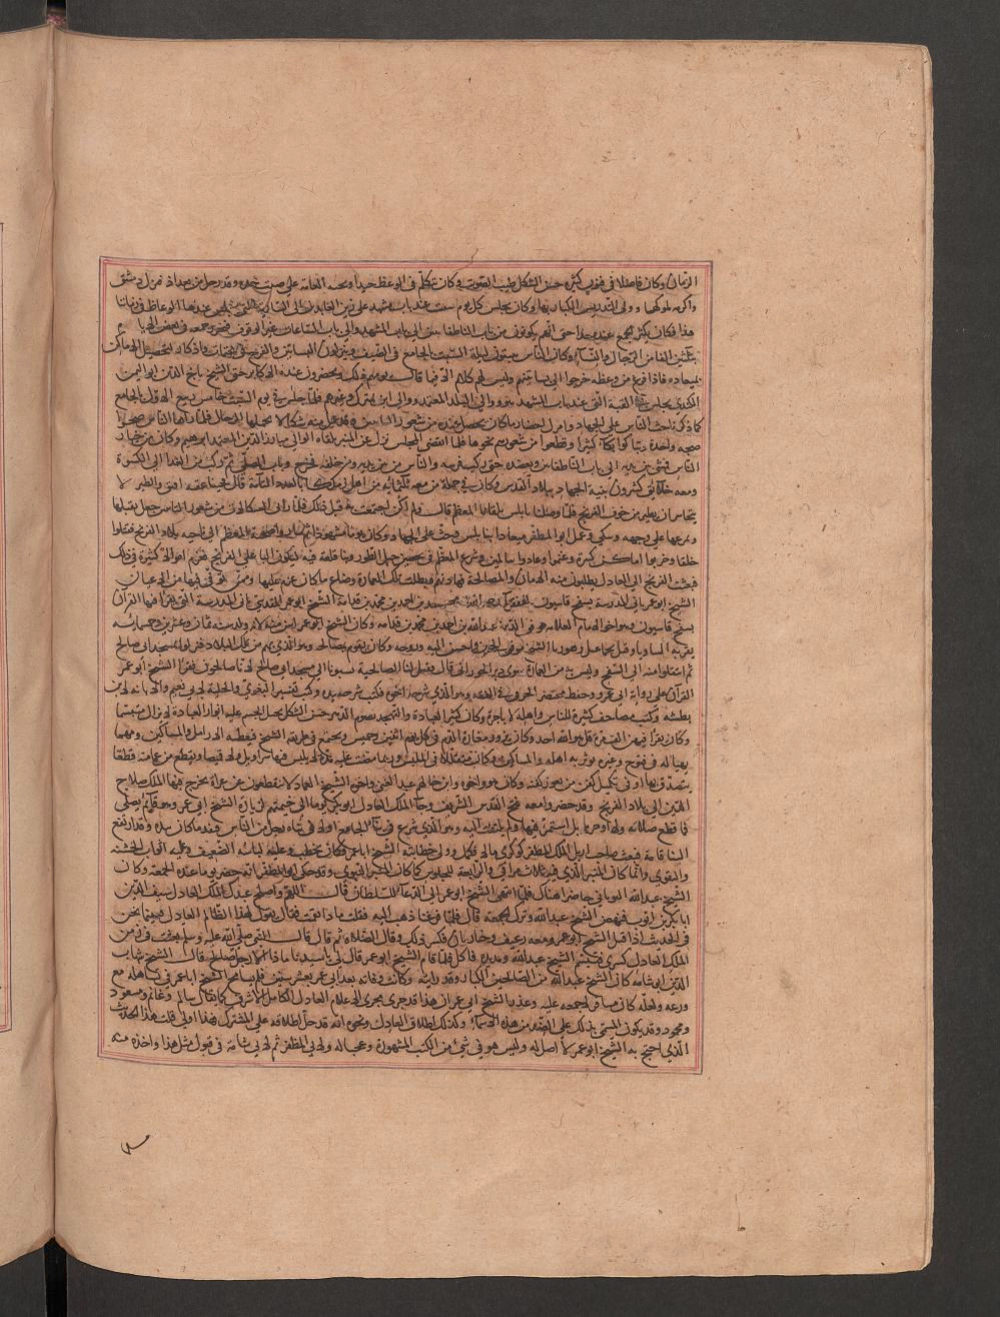 الزمان وكان فاضلا في فنون كثيرة حسن الشكل طيب الصوت وكان يتكلم في الوعظ جيدا وتحبه العامة على صيت
واكرمه ملوكها وولي التدريس الكبار بها وكان يجلس كل يوم سبت عند باب مشهد علي زين العابدين الى السارية التي يجلس عندها الوعاظ في زماننا
هذا فكان يكثر الجمع عنده جدا حتى انهم يكونون من باب الناطفانيين الى باب المشهد والى باب الساعات غير الوقوف فحزر جمعه في بعض الاحيان
بثلاثين الفا من الرجال والنساء وكان الناس يبيتون ليلة السبت بالجامع في الصيف ويتركون البساتين
لميعاده فاذا فرغ من وعظه خرجوا الى بساتينهم وليس لهم كلام الا فيما قال يومهم ذلك ويحضرون عنده الاكابر حتى الشيخ تاج الدين ابو اليمن
الكندي يجلس في القبة التي عند باب المشهد هو ووالي البلد المعتمد ووالي البر وغيرهم فلما جلس يوم السبت خامس ربيع الاول بالجامع
كما ذكرنا حث الناس على الجهاد وامر باحضار ما كان تحصل عنده من شعور وقد عمل منه شكالا تحمله الرجال فلما رآها الناس ضجوا
ضجة واحدة وبكوا بكاء كثيرا وقطعوا من شعورهم نحوها فلما انقضى المجلس نزل عن المنبر تلقاه الوالي مبارز الدين المعتمد ابراهيم وكان من خيار
الناس فمشى بين يديه الى باب الناطفانيين وبعضده حتى ركب فرسه والناس من بين يديه ومن خلفه فخرج وبات بالمصلى ثم ركب من الغد الى الكسوة
ومعه خلائق كثيرون بنية الجهاد ببلاد القدس وكان في جملة من معه ثلاثمائة من اهل بالعدد التامة قال فجينا عقبة افيق والطير لا
يتجاسر ان يطير من خوف الفرنج فلما وصلنا نابلس تلقانا المعظم قال ولم اكن اجتمعت به قبل ذلك فلما راى الشكالات من شعور الناس جعل يقبلها
ويمرغها على وجهه وبكى وعمل ابو المظفر ميعادا بنابلس وحث على الجهاد وكان يوما مشهودا ثم سار وصحبته المعظم الى ناحية بلاد الفرنج فقتلوا
خلقا وخربوا اماكن كثيرة وغنموا وعادوا سالمين وشرع المعظم في تحصين جبل الطور وبنا قلعة فيه ليكون البا على الفرنج فغرم اموالا كثيرة في ذلك
فبعث الفرنج الى العادل يطلبون منه الامان والمصالحة فهادنهم وبطلت تلك العمارة وضاع ما كان غرم عليها وممن توفي فيها من الاعيان
الشيخ ابو عمر باني المدرسة بسفح قاسيون للفقراء محمد بن احمد بن محمد بن قدامة الشيخ ابو عمر المقدسي باني المدرسة التي يقرا فيها القرآن
بسفح قاسيون وهو اخو الامام العلامة موفق الدين عبد الله بن احمد بن محمد بن قدامة وكان الشيخ ابو عمر اسن منه لانه ولد سنة ثمان وعشرين وخمسمائة
بقرية الساويا وقيل بجماعيل وهو ربا الشيخ موفق الدين واحسن اليه وزوجه وكان يقوم بمصالحه وهو الذي هاجر بهم من تلك البلاد فنزلوا بمسجد ابي صالح
ثم انتقلوا منه الى السفح وليس به من العمارة سوى دير الحوراني قال فقيل لنا الصالحية نسبونا الى مسجد ابي صالح لا انا صالحون فقرا الشيخ ابو عمر
القرآن على رواية ابي عمرو وحفظ مختصر الخرقي في الفقه وهو الذي شرحه اخوه فكتب شرحه بيده وكتب تفسير البغوي والحلية لابي نعيم والابانة لابن
بطة وكتب مصاحف كثيرة للناس ولاهله بلا اجرة وكان كثير العبادة والتهجد يصوم الدهر حسن الشكل نحيل الجسم عليه انوار العبادة لا يزال متبسما
وكان يقرا فيما بين العصر قل هو الله احد وكان يزور مغارة الدم في كل يوم اثنين وخميس ويجمع في طريقه الشيح فيعطيه الارامل والمساكين ومهما
تهيأ له من فتوح وغيره يوثر به اهله والمساكين وكان متقللا في الملبس وربما مضت عليه مدة لا يلبس فيها سراويل ولا قميصا ويقطع من عمامته قطعا
يتصدق بها او في تكميل كفن من يعوز كفنه وكان هو واخوه وابن خالهم عبد الغني واخوه الشيخ العماد لا ينقطعون عن غزاة يخرج فيها الملك صلاح
الدين الى بلاد الفرنج وقد حضروا معه فتح القدس الشريف وجاء الملك العادل ابو بكر يوما الى خيمتهم لزيارة الشيخ ابي عمر وهو قائم يصلي
فما قطع صلاته ولا اوجزها بل استمر فيها ولم يلتفت اليه وهو الذي شرع في بناء الجامع اولا في بناه رجل من الناس فنفد ما كان بيده وقد ارتفع
البنا قامة فبعث صاحب اربل الملك المظفر كوكبري مالا فكمل وولي خطابته الشيخ ابا عمر فكان يخطب وعليه لباسه الضعيف وعليه انوار الخشية
والتقوى وانما كان المنبر الذي فيه ثلاث مراقي والرابعة للجلوس كما كان المنبر النبوي وقد حكى ابو المظفر انه حضر يوما عنده الجمعة وكان
الشيخ عبد الله اليوناني حاضرا هناك فلما انتهى الشيخ ابو عمر الى الدعاء للسلطان قال اللهم واصلح عبدك الملك العادل سيف الدين
ابا بكر بن ايوب فنهض الشيخ عبد الله وترك الجمعة قال فلما فرغنا ذهبت اليه فقلت ماذا نقمت فقال يقول لهذا الظالم العادل فبينما نحن
في الحديث اذ اقبل الشيخ ابو عمر ومعه رغيف وخيارتان فكسر ذلك وقال الصلاة ثم قال قال النبي صلى الله عليه وسلم بعثت في زمن
الملك العادل كسرى فتبسم الشيخ عبد الله ومد يده فاكل فلما قام الشيخ ابو عمر قال لي يا سيدنا ماذا الا رجل صالح قال الشيخ شهاب
الدين ابي شامة كان الشيخ عبد الله من الصالحين الكبار وقد رايته وكانت وفاته بعد ابي عمر بعشر سنين فلم يسامح الشيخ ابا عمر في تساهله مع
ورعه ولعله كان مسافرا لا جمعة عليه وعذر الشيخ ابي عمر ان هذا قد جرى مجرى الاعلام العادل الكامل الاشرف كما يقال سالم وغانم ومسعود
ومحمود وقد يكون المسمى بذلك على الضد من هذه الاسماء وكذلك اطلاق العادل ونحوه انه قد اطلاقه على المشرك فهذا اولى قلت هذا الحديث
الذي احتج به الشيخ ابو عمر لا اصل له وليس هو في شيء من الكتب المشهورة وعجبا له ولابي المظفر ثم لابي شامة في قبول مثل هذا واخذه منه